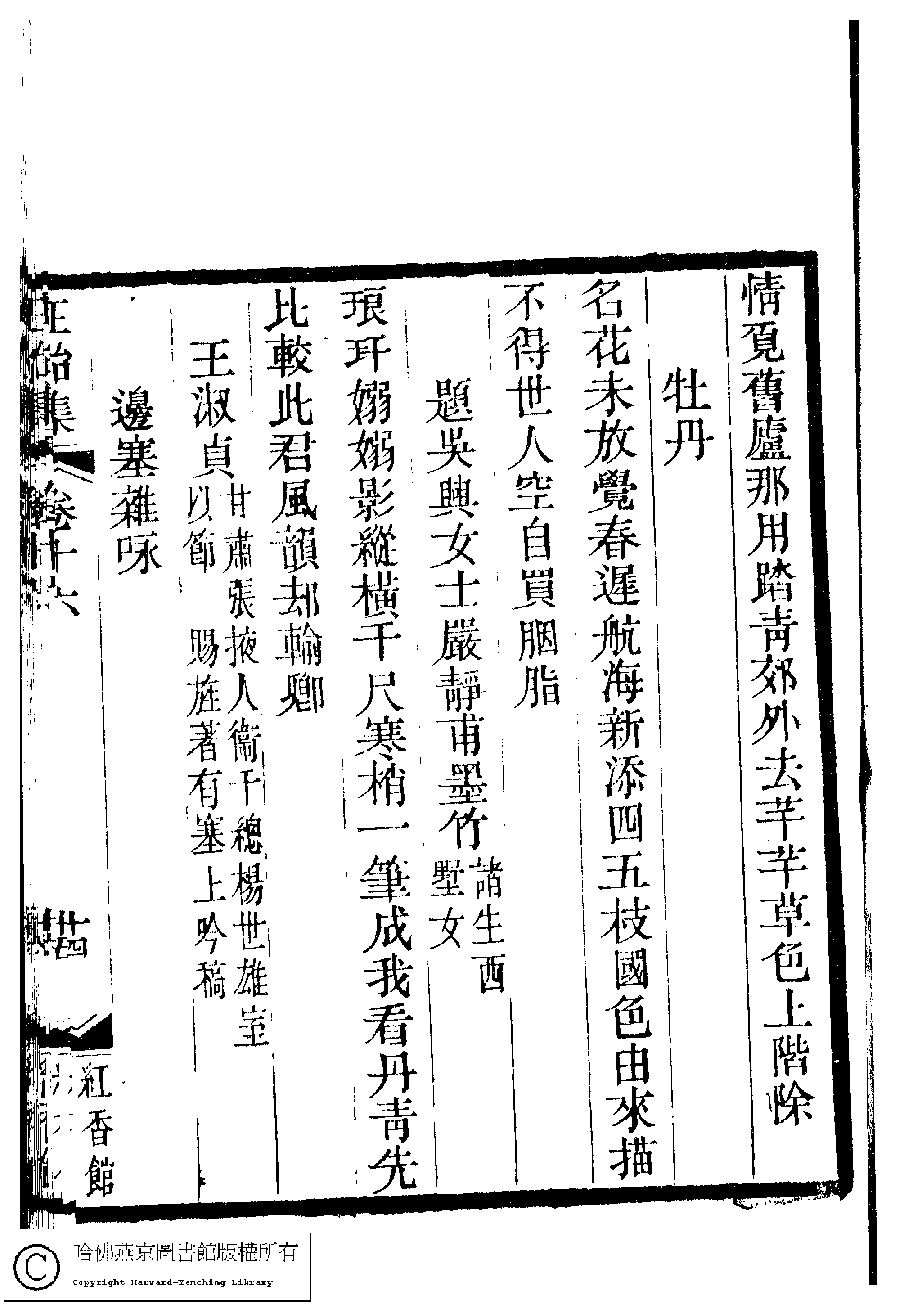 情覔舊廬那用踏靑郊外去芊芊草色上階除
牡丹
名花未放覺春遲航海新添四五枝國色由來描
不得世人空自買胭脂
題吳興女士嚴靜甫墨竹
諸生西
墅女
琅玕嫋嫋影縱橫千尺寒梢一筆成我看丹靑先
比較此君風韻却輸卿
王淑貞
甘肅張掖人衞千總楊世雄室
以節 賜旌著有塞上吟稿
邊塞雜咏
正始集 卷十六
紅香館
哈佛燕京圖書館版權所有
Copyright Harvard-Yenching Library